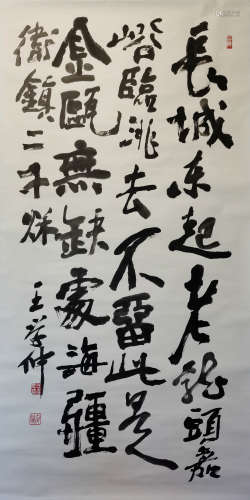 長城东起老龍頭嘉
峪臨洮去不留此是
金甌無缺處海疆
衛鎮二千秋
王学仲